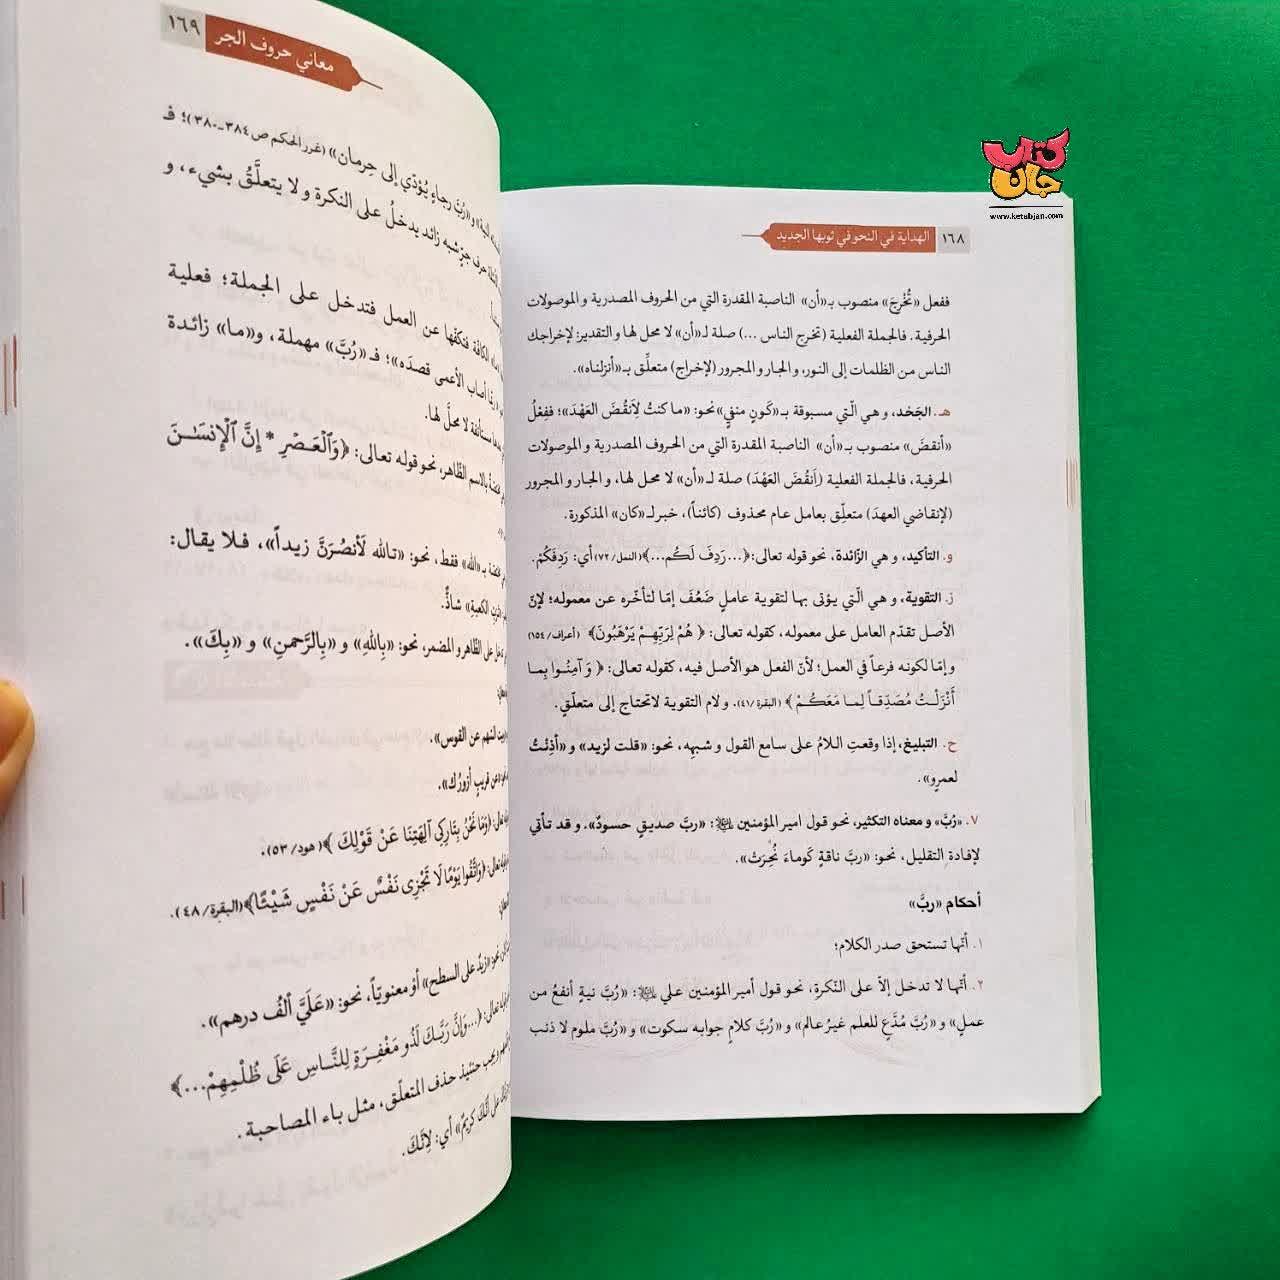 ١٦٨ الهداية في النحو في ثوبها الجديد
ففعل «تُخْرِجَ» منصوب بـ«أن» الناصبة المقدرة التي من الحروف المصدرية و الموصولات
الحرفية. فالجملة الفعلية (تخرج الناس ...) صلة لـ«أن» لا محل لها و التقدير: لإخراجك
الناس من الظلمات إلى النور، والجار و المجرور (لإخراج) متعلِّق بـ«أنزلناه».
هـ. الجَحْد، و هي الّتي مسبوقة بـ«كَونٍ منفيٍ» نحو: «ما كنتُ لِأَنقُضَ العَهْدَ»؛ ففِعْلُ
«أنقضَ» منصوب بـ«أن» الناصبة المقدرة التي من الحروف المصدرية و الموصولات
الحرفية، فالجملة الفعلية (اَنقُضَ العَهْدَ) صلة لـ«أن» لا محل لها، و الجار و المجرور
(لإنقاضي العهدَ) متعلِّق بعامل عام محذوف (كائناً)، خبر لـ«كان» المذكورة.
و. التأكيد، و هي الزّائدة، نحو قوله تعالى: ﴿...رَدِفَ لَكُم...﴾(النمل/٧٢) أي: رَدِفَكُمْ.
ز. التقوية، و هي الّتي يؤتى بها لتقوية عاملٍ ضَعُفَ إمّا لتأخّره عن معموله؛ لإنّ
الأصل تقدّم العامل على معموله، كقوله تعالى: ﴿ هُمْ لِرَبِّهِمْ يَرْهَبُونَ﴾ (أعراف/١٥٤)
و إمّا لكونه فرعاً في العمل؛ لأنّ الفعل هو الأصل فيه، كقوله تعالى: ﴿ وَ آمِنُوا بِما
أَنْزَلْتُ مُصَدِّقاً لِما مَعَكُمْ ﴾ (البقرة/٤١). و لام التقوية لا تحتاج إلى متعلّقٍ.
ح. التبليغ، إذا وقعتِ اللامُ على سامع القول و شبهِه، نحو: «قلت لزيد» و «أذِنتُ
لعمرو».
٧. «رُبَّ» و معناه التكثير، نحو قول امير المؤمنين ﷺ: «ربّ صديقٍ حسودٌ». و قد تأتي
لإفادة التقليل، نحو: «ربّ ناقةٍ كَوماءَ نُحِرَتْ».
أحكام «ربَّ»
١. أنّها تستحق صدر الكلام؛
٢. أنّها لا تدخل إلاّ على النّكرة، نحو قول أمير المؤمنين علي ﷺ: «رُبَّ نيةٍ أنفعُ من
عملٍ» و «رُبَّ مُدَّعٍ للعلم غيرُ عالم» و «رُبَّ كلامٍ جوابه سكوت» و «رُبَّ ملوم لا ذنب
معاني حروف الجر ١٦٩
و «رُبَّ رجاءٍ يُؤدّي إلى حِرمان» (غرر الحكم ص ٣٨٤-٣٨٠)؛ فـ
حرف جرّ شبه زائد يدخلُ على النكرة و لا يتعلَّقُ بشيء، و
الكافة فتكفّها عن العمل فتدخل على الجملة؛ فعلية
أصاب الأعمى قصدَه»؛ فـ «رُبَّ» مهملة، و«ما» زائدة
مستأنفة لا محلَّ لها.
بالاسم الظّاهر، نحو قوله تعالى: ﴿وَٱلْعَصْرِ * إِنَّ ٱلْإِنسَٰنَ
بـ «الله» فقط، نحو: «تالله لَأنصُرَنَّ زيداً»، فلا يقال:
الكعبةِ» شاذٌّ.
على الظّاهر و المضمر، نحو: «بِاللهِ» و «بِالرَّحمنِ» و «بِكَ».
السّهم عن القوس».
عن قريبٍ أزورُك».
تعالى: ﴿وَمَا نَحْنُ بِتَارِكِي آلِهَتِنَا عَنْ قَوْلِكَ ﴾(هود/٥٣).
تعالى: ﴿وَاتَّقُوا يَوْمًا لَا تَجْزِى نَفْسٌ عَنْ نَفْسٍ شَيْئًا﴾(البقرة/٤٨).
نحو: «زيدٌ على السطح» أو معنويّاً، نحو: «عَلَيَّ ألفُ درهم».
تعالى: ﴿...وَإِنَّ رَبَّكَ لَذُو مَغْفِرَةٍ لِلنَّاسِ عَلَى ظُلْمِهِمْ...﴾
و يجب حينئيذ حذف المتعلّق، مثل باء المصاحبة.
على أنّكَ كريمٌ» أي: لِأنّكَ.
کتاب جان
www.ketabjan.com